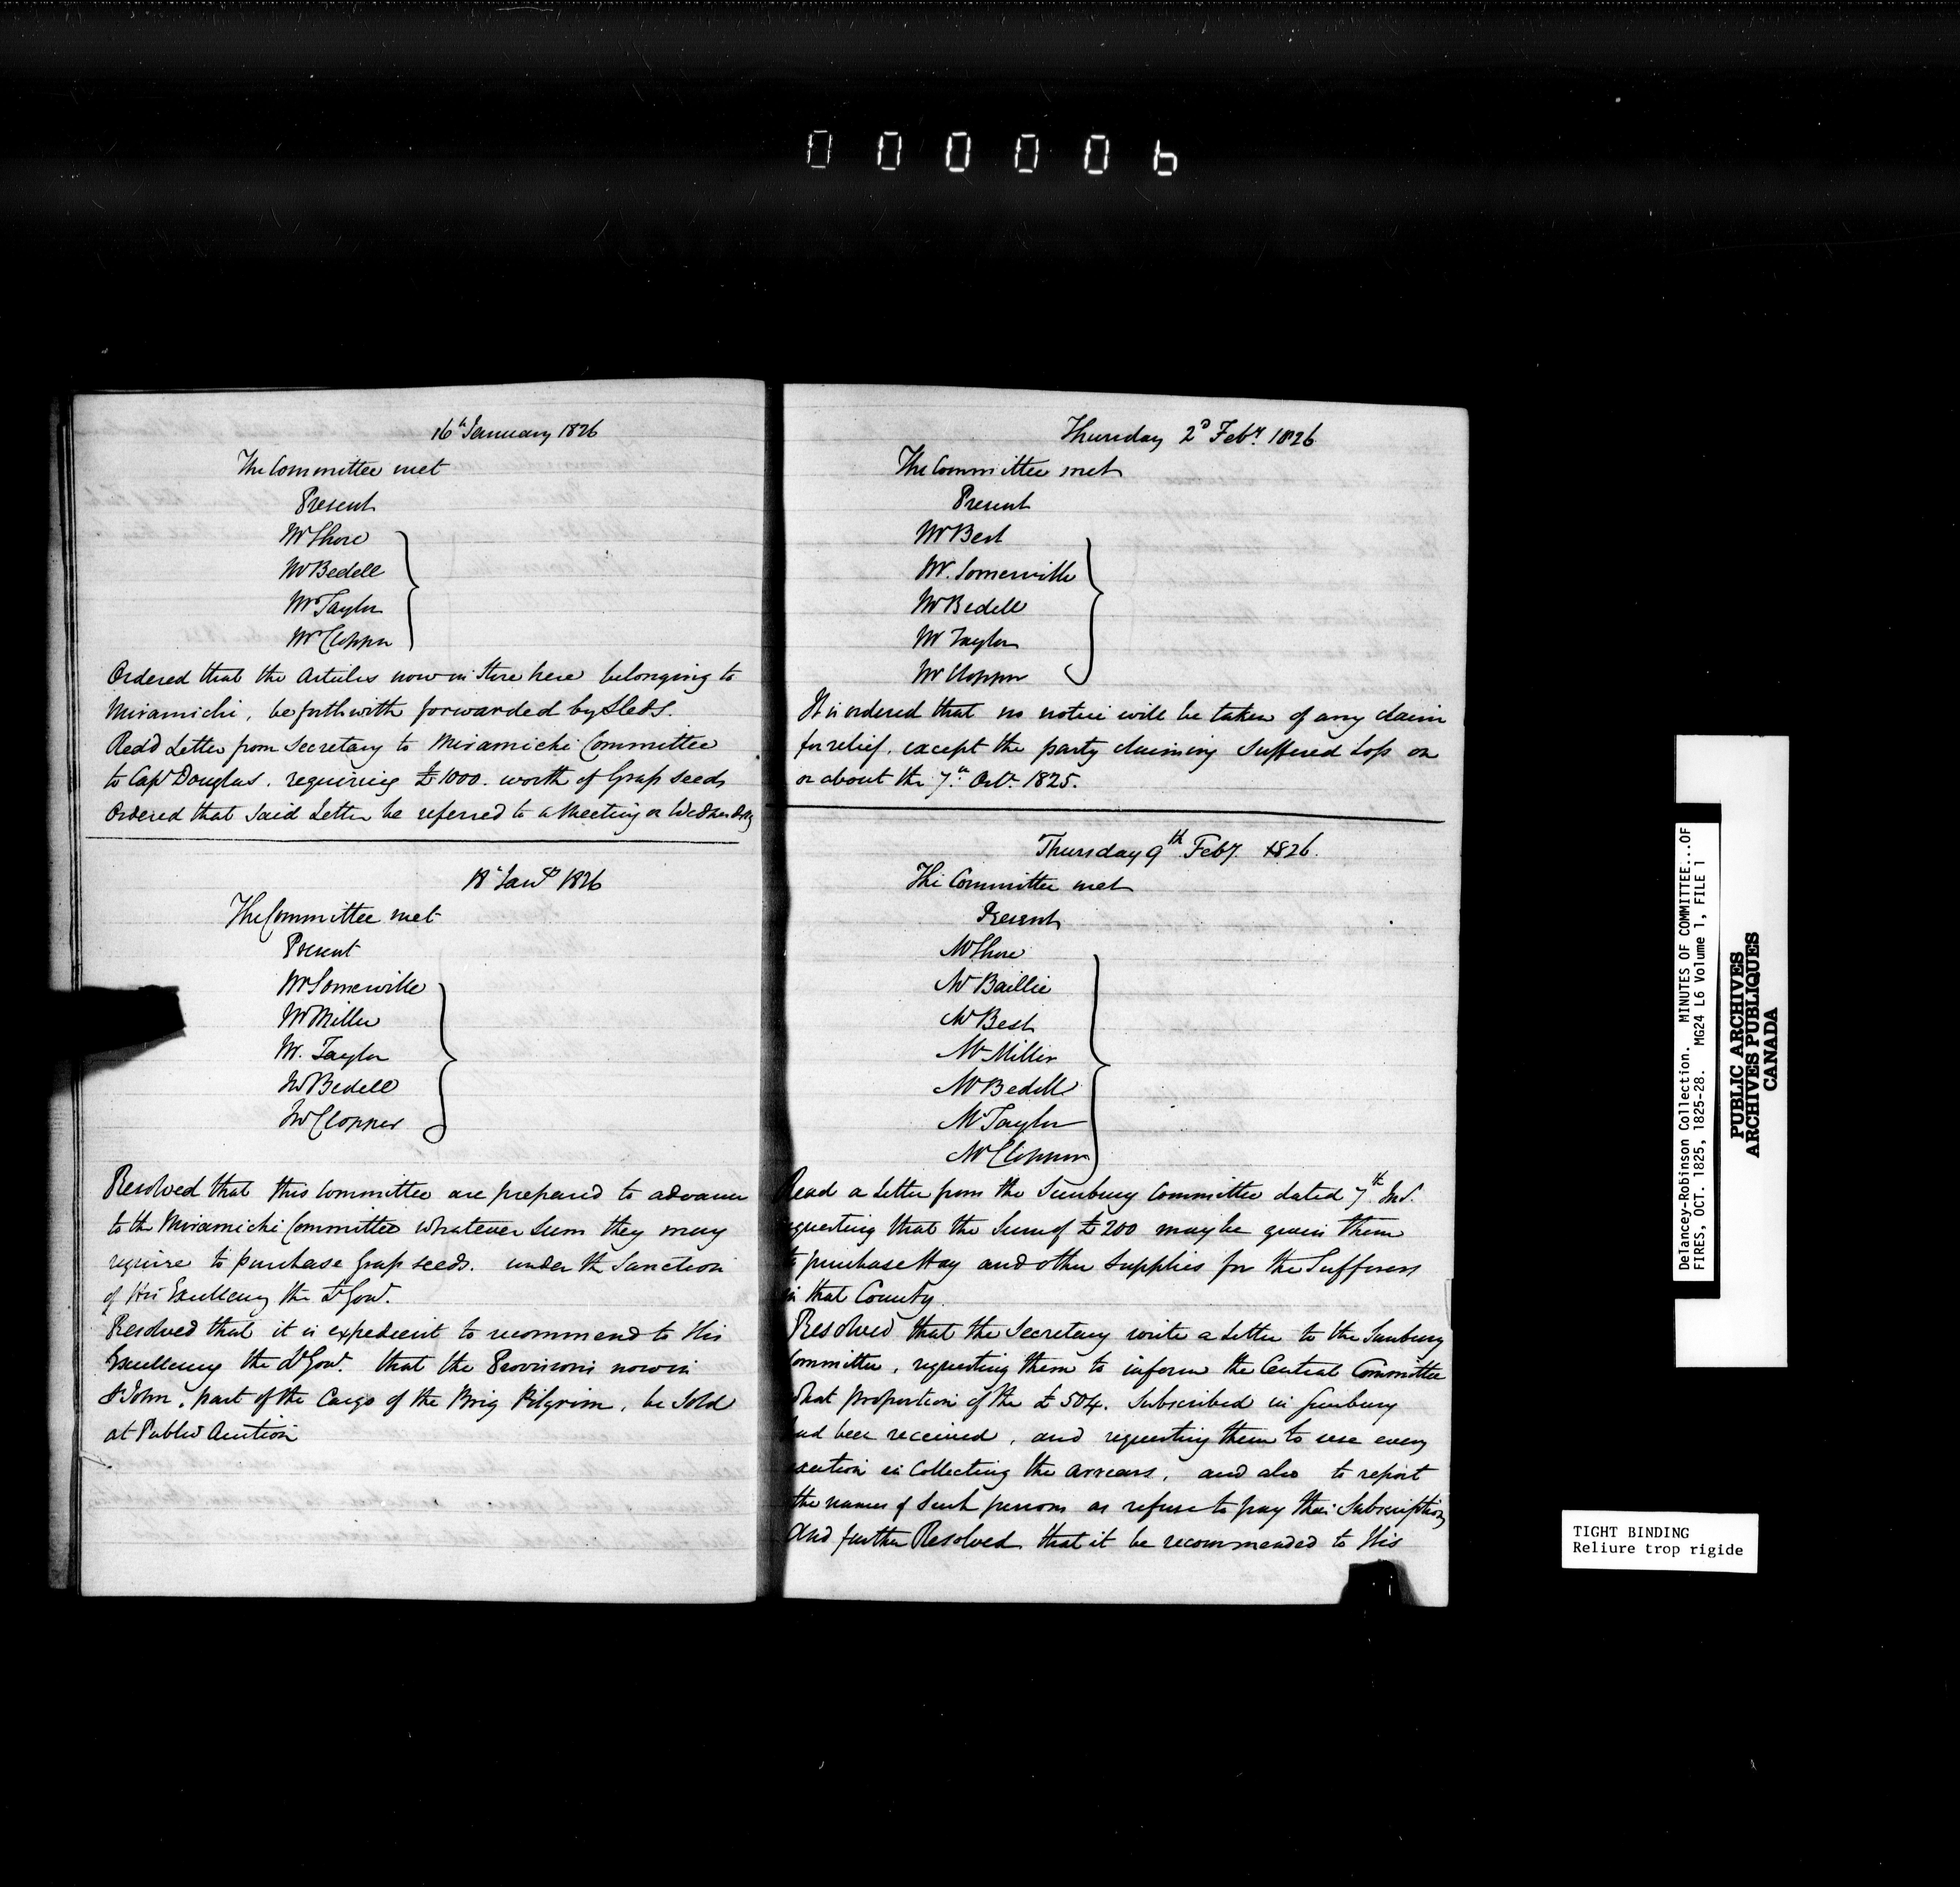 000006
16th January 1826
The Committee met
Present
Mr Shore
Mr Bedell
Mr Taylor
Mr Clopper
Ordered that the Articles now in Store here belonging to
Miramichi, be forthwith forwarded by Sleds.
Read Letter from Secretary to Miramichi Committee
to Capt Douglas. requiring £1000. worth of Grass seeds
Ordered that said Letter be referred to a Meeting on Wednesday
18th Jany 1826
The Committee met
Present
Mr Somerville
Mr Miller
Mr. Taylor
Mr Bedell
Mr Clopper
Resolved that this Committee are prepared to advance
to the Miramichi Committee whatever Sum they may
require to purchase Grass seeds. under the Sanction
of His Excellency the Lt Govr.
Resolved that it is expedient to recommend to His
Excellency the Lt Govr. that the Provisions now in
St John, part of the Cargo of the Brig Pilgrim, be Sold
at Public Auction
Thursday 2d Feby. 1826
The Committee met
Present
Mr Best
Mr. Somerville
Mr Bedell
Mr Taylor
Mr Clopper
It is ordered that no notice will be taken of any claim
for relief, except the party claiming Suffered Loss on
or about the 7th Octr. 1825.
Thursday 9th Feby. 1826.
The Committee met
Present
Mr Shore
Mr Baillie
Mr Best
Mr Miller
Mr Bedell
Mr Taylor
Mr Clopper
Read a Letter from the Sunbury Committee dated 7th Inst.
requesting that the Sum of £200 may be given them
to purchase Hay and other Supplies for the Sufferers
in that County.
Resolved that the Secretary write a Letter to the Sunbury
Committee, requesting them to inform the Central Committee
what proportion of the £504. Subscribed in Sunbury
had been received, and requesting them to use every
exertion in Collecting the arrears, and also to report
the names of Such persons as refuse to pay their Subscription
And further Resolved that it be recommended to His
Delancey-Robinson Collection. MINUTES OF COMMITTEE...OF
FIRES, OCT. 1825, 1825-28. MG24 L6 Volume 1, FILE 1
PUBLIC ARCHIVES
ARCHIVES PUBLIQUES
CANADA
TIGHT BINDING
Reliure trop rigide